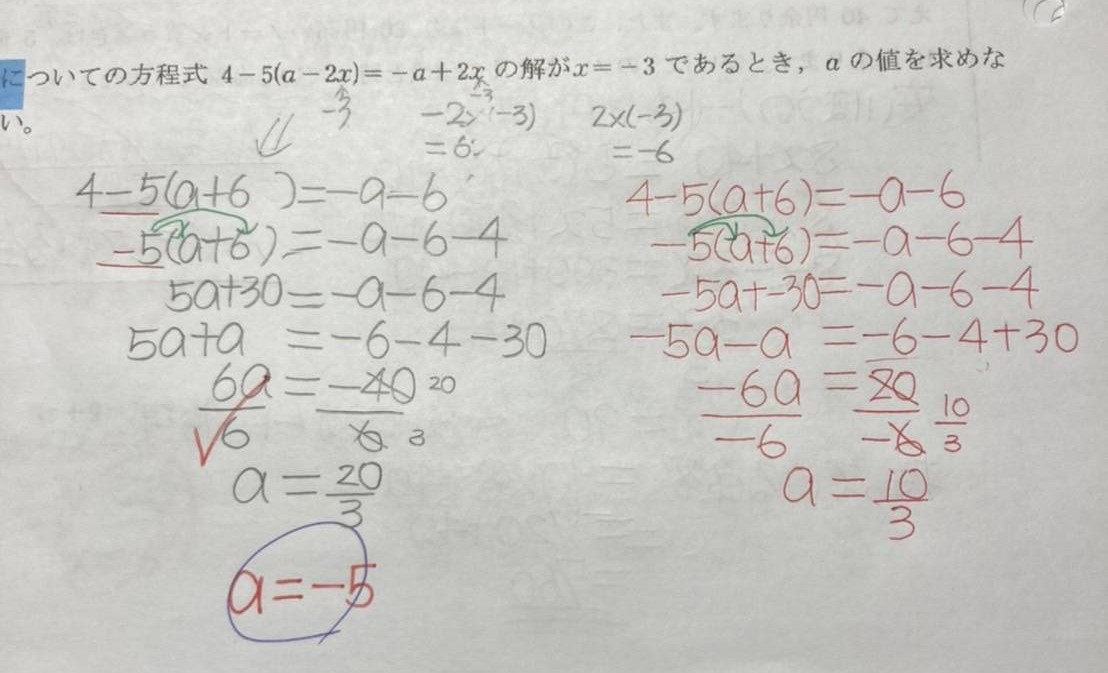 についての方程式 4-5(a-2x)=-a+2x の解がx=-3 であるとき，a の値を求めな
い。
-3
-3
-2×(-3)
=6
2×(-3)
=-6
4-5(a+6 )=-a-6
-5(a+6)=-a-6-4
5a+30=-a-6-4
5a+a =-6-4-30
6a = -40 20
6 6 3
a = 20
3
a=-5
4-5(a+6)=-a-6
-5(a+6)=-a-6-4
-5a+-30=-a-6-4
-5a-a =-6-4+30
-6a = 20
-6 -6
10
3
a = 10
3